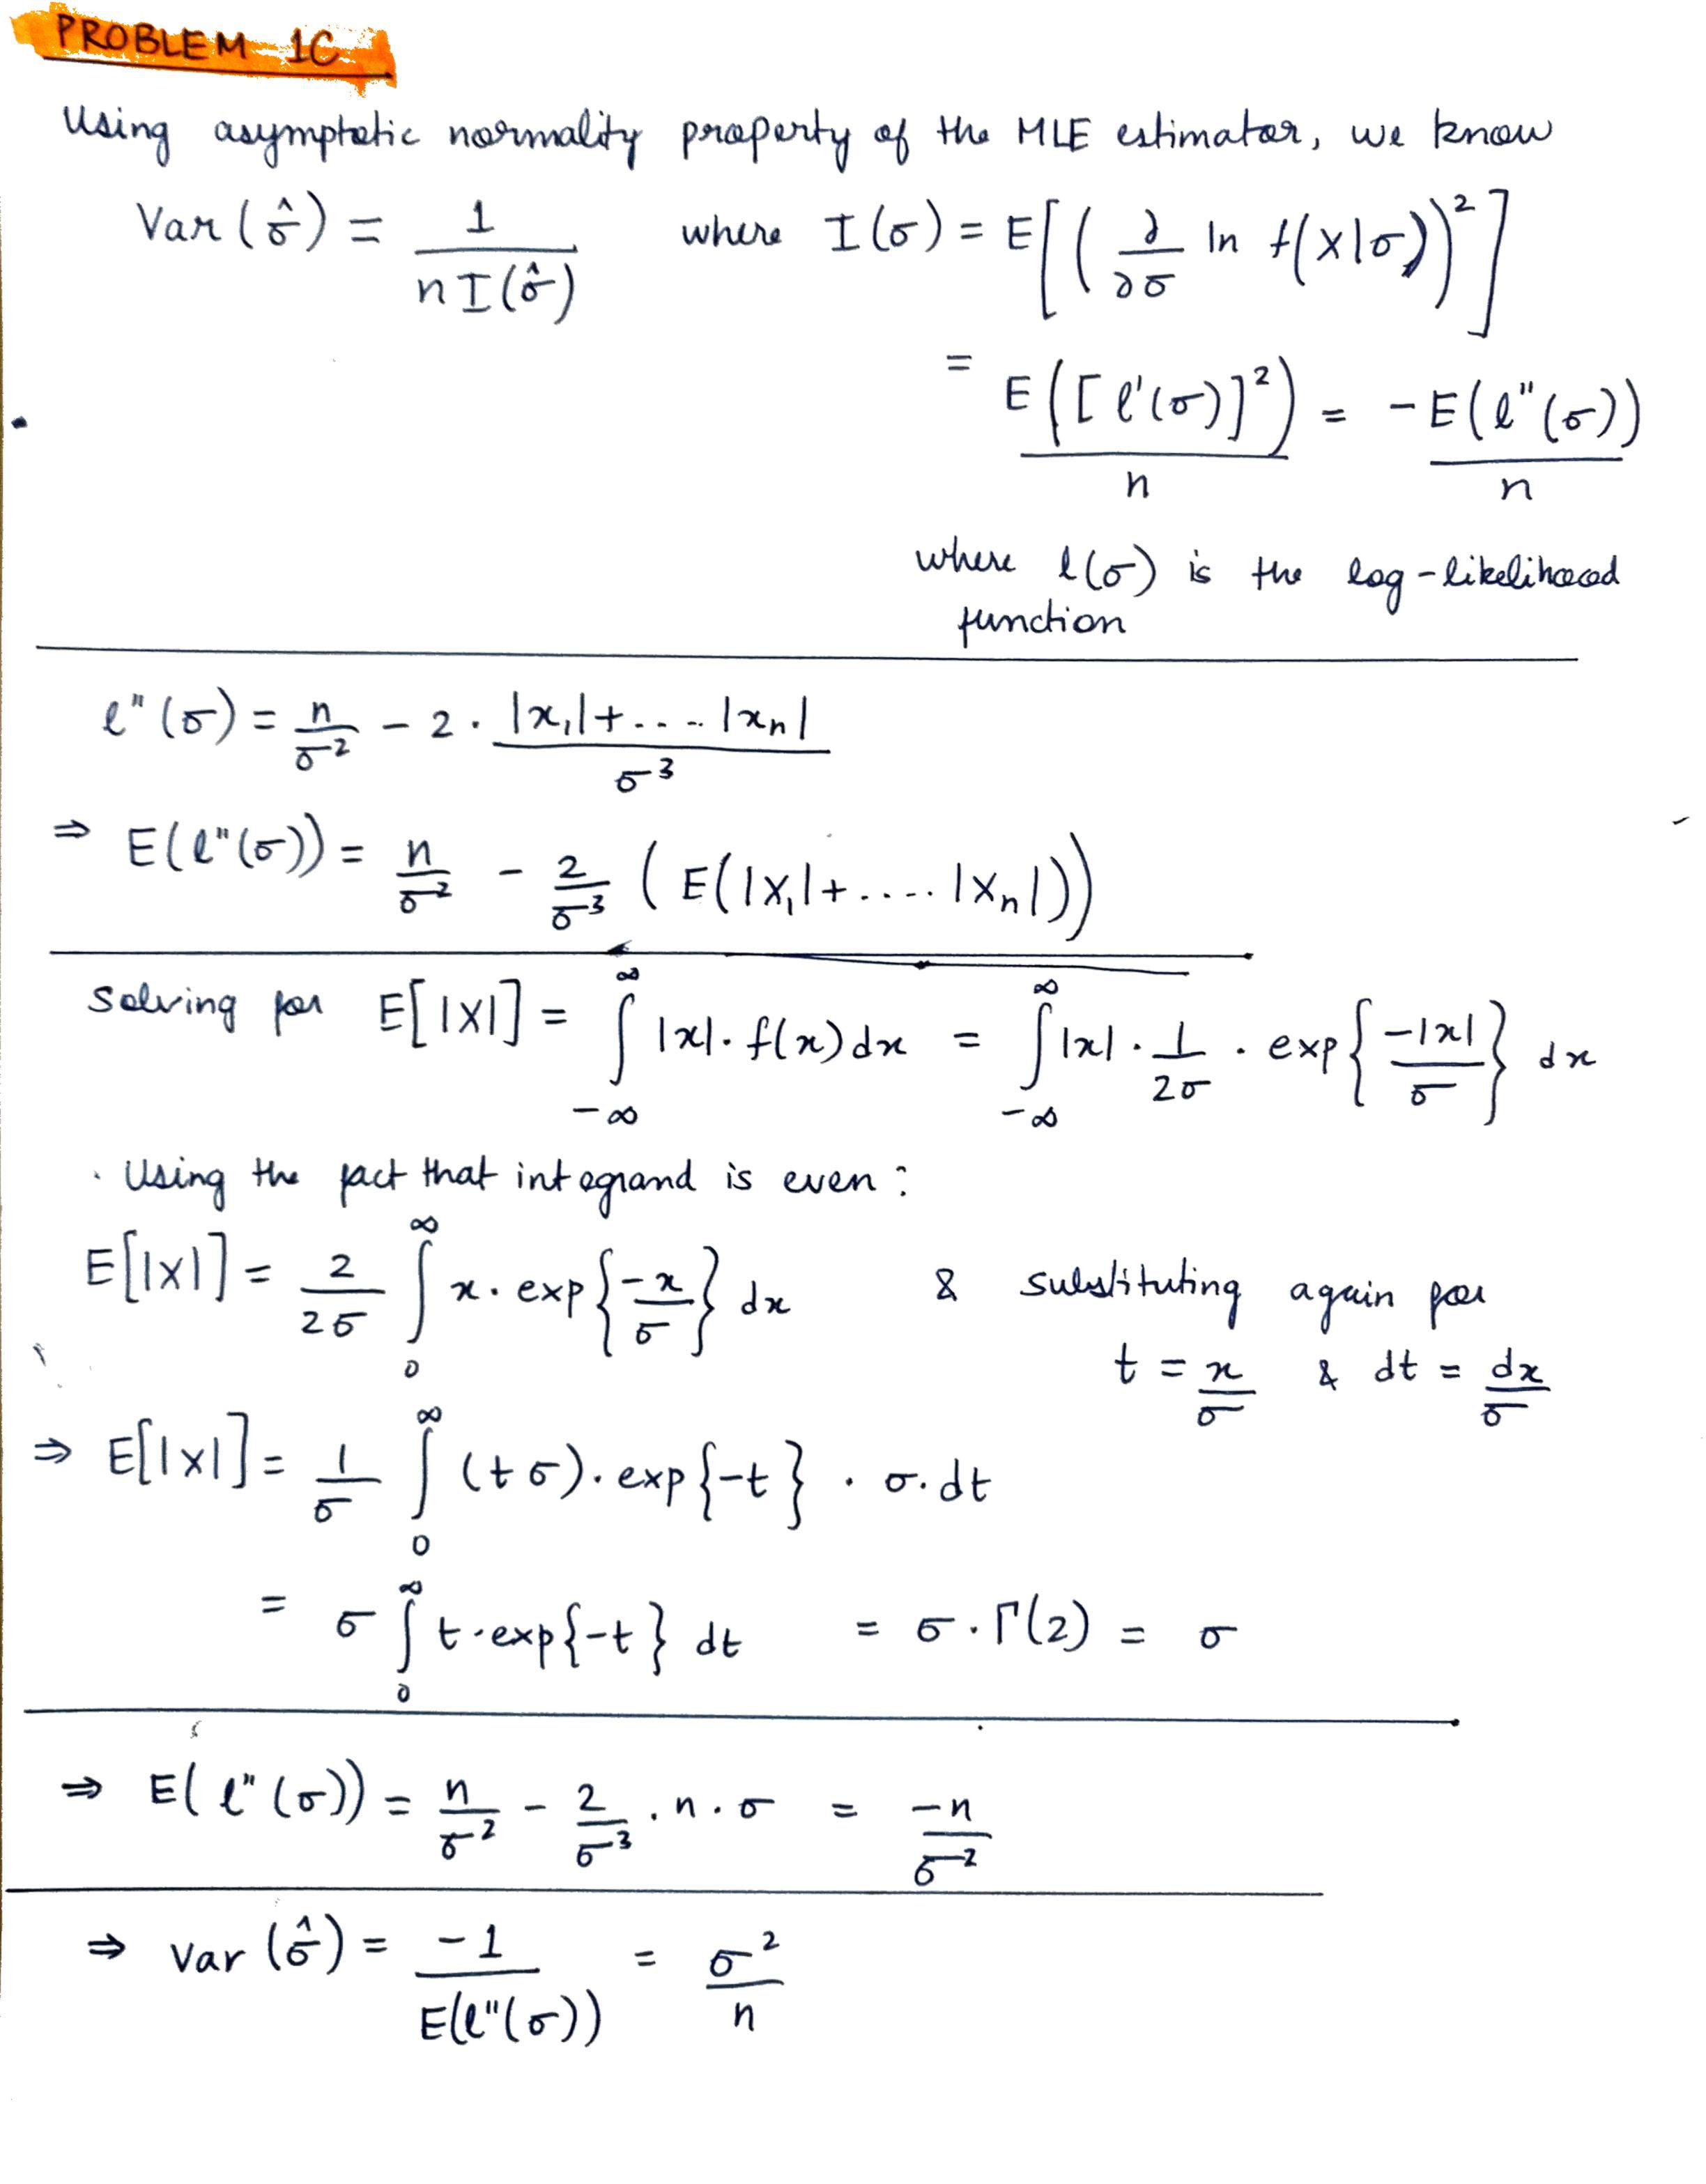 PROBLEM 1C
Using asymptotic normality property of the MLE estimator, we know
Var(σ̂) = 1 / (n I(σ̂)) where I(σ) = E[(∂/∂σ ln f(X|σ))²]
= E([l'(σ)]²) / n = -E(l''(σ)) / n
where l(σ) is the log-likelihood
function
l''(σ) = n/σ² - 2 · (|x₁|+....|xₙ|) / σ³
⇒ E(l''(σ)) = n/σ² - 2/σ³ (E(|X₁|+.....|Xₙ|))
Solving for E[|X|] = ∫_{-∞}^{∞} |x|. f(x) dx = ∫_{-∞}^{∞} |x| · 1/2σ · exp{-|x|/σ} dx
. Using the fact that integrand is even:
E[|X|] = 2/2σ ∫_0^∞ x. exp{-x/σ} dx & substituting again for
t = x/σ & dt = dx/σ
⇒ E[|X|] = 1/σ ∫_0^∞ (tσ). exp{-t} · σ. dt
= σ ∫_0^∞ t.exp{-t} dt = σ. Γ(2) = σ
⇒ E(l''(σ)) = n/σ² - 2/σ³ . n . σ = -n/σ²
⇒ var(σ̂) = -1 / E(l''(σ)) = σ²/n